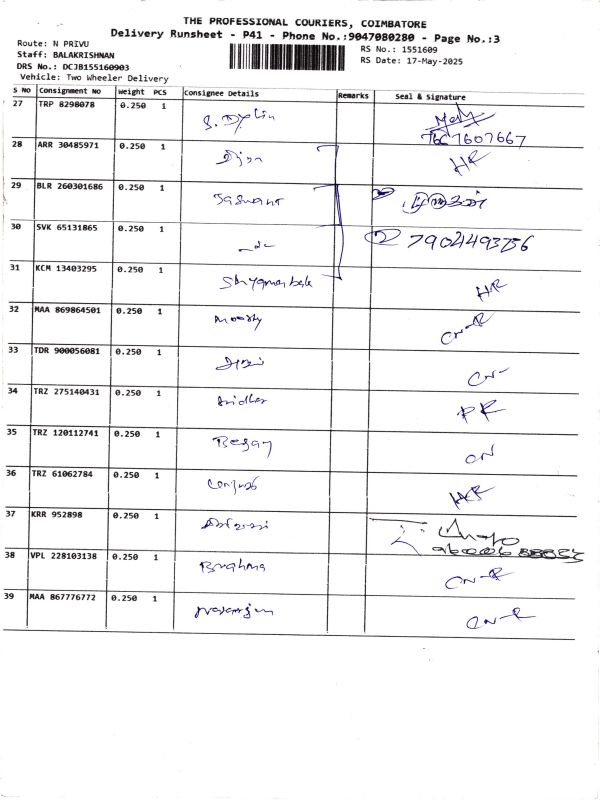 THE PROFESSIONAL COURIERS, COIMBATORE
Delivery Runsheet - P41 - Phone No.:9047080280 - Page No.:3
Route: N PRIVU
Staff: BALAKRISHNAN
DRS No.: DCJB155160903
Vehicle: Two Wheeler Delivery
RS No.: 1551609
RS Date: 17-May-2025
S No Consignment No Weight PCS Consignee Details Remarks Seal & Signature
27 TRP 8298078 0.250 1
28 ARR 30485971 0.250 1 HR
29 BLR 260301686 0.250 1 Jaswant
30 SVK 65131865 0.250 1 7904493756
31 KCM 13403295 0.250 1 HR
32 MAA 869864501 0.250 1 Moorthy CN-R
33 TDR 900056081 0.250 1 CN-
34 TRZ 275140431 0.250 1 Sridhar PR
35 TRZ 120112741 0.250 1 CN
36 TRZ 61062784 0.250 1 HR
37 KRR 952898 0.250 1
38 VPL 228103138 0.250 1 Brahma CN-R
39 MAA 867776772 0.250 1 CN-R